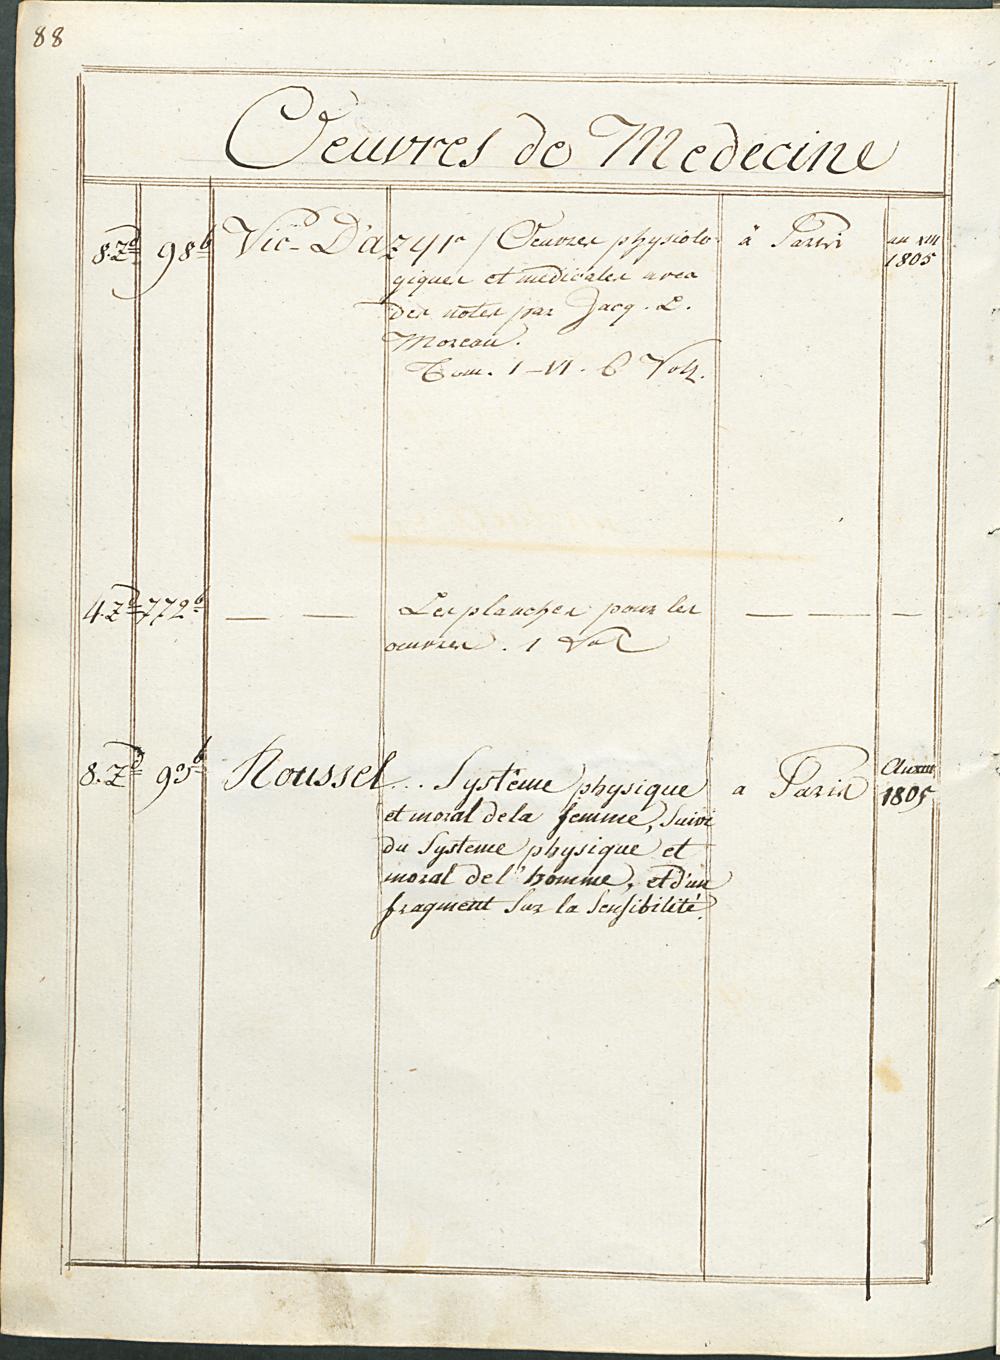 88
Oeuvres de Medecine
8. Zd 98b Vic-D'azyr / Oeuvres physiolo- à Paris an XIII
giques et medicales avec 1805
des notes par Jacq. L.
Moreau.
Tom. I-VI. 6 Vol.
4. Zd 772b — — Les planches pour les — — —
oeuvres. 1 Vol
8. Zd 95b Roussel... Systême physique a Paris An XIII
et moral de la femme, Suivi 1805
du Systeme physique et
moral de l'homme, et d'un
fragment Sur la Sensibilité.